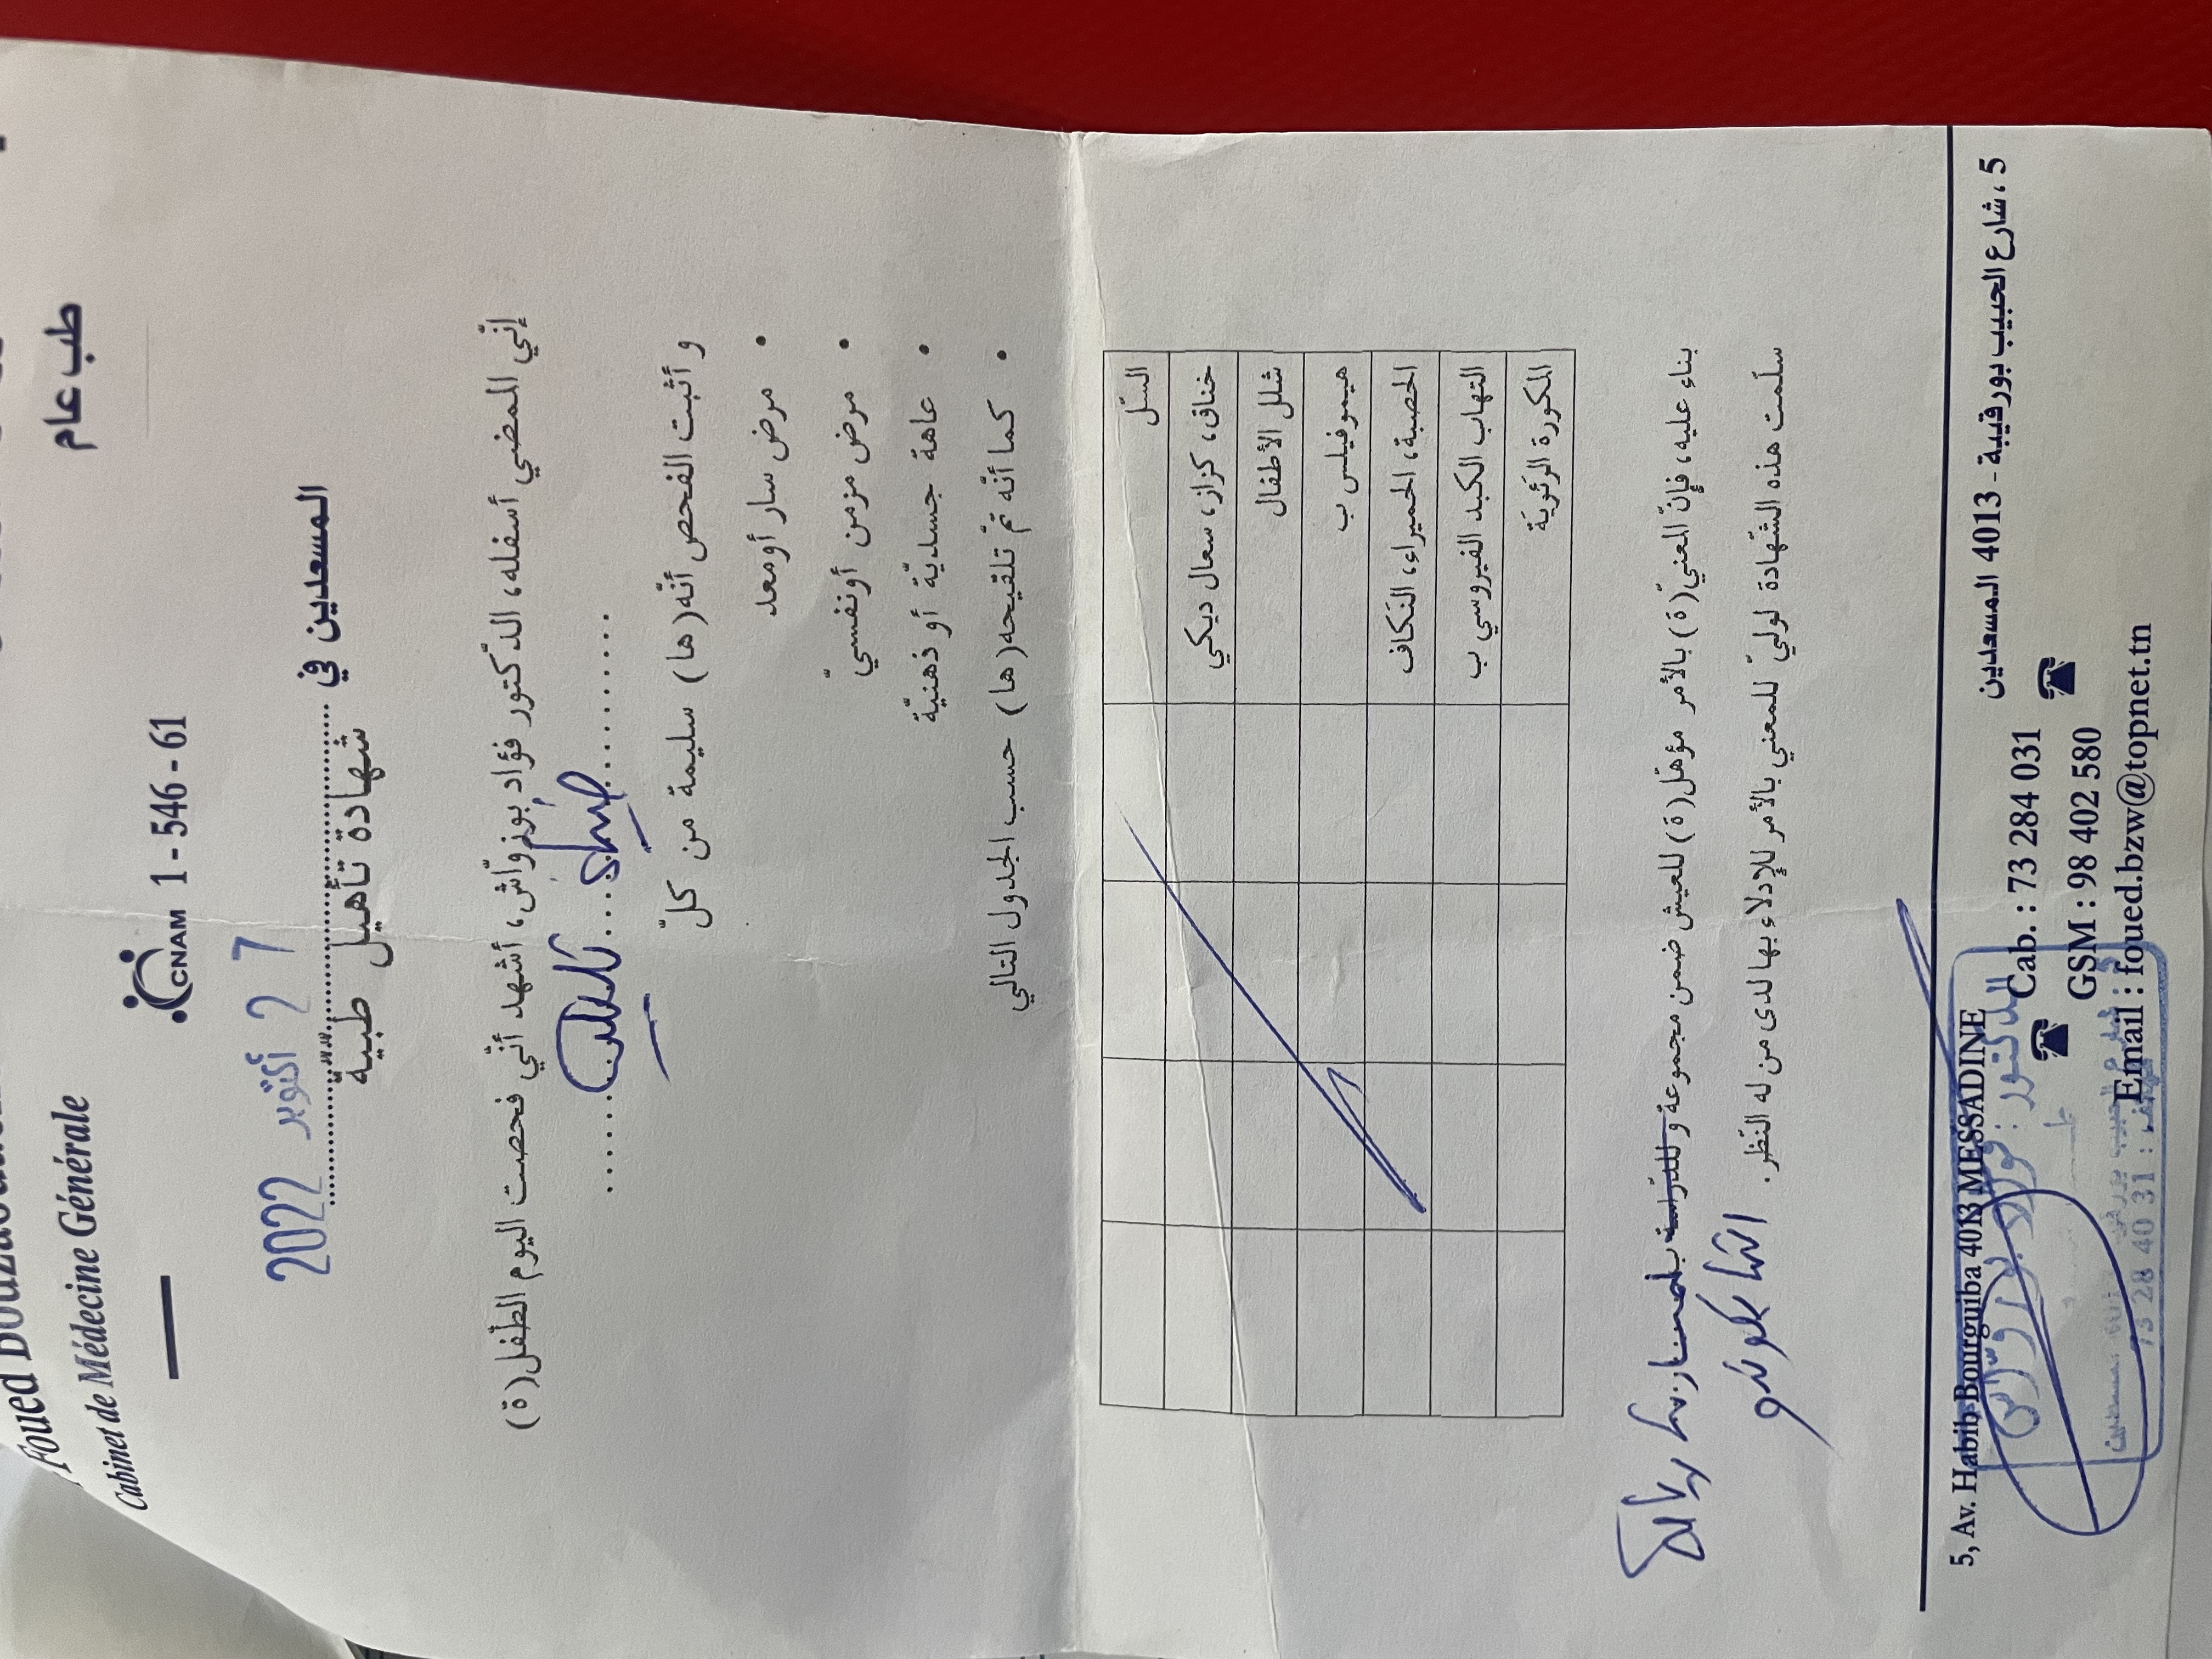 Foued
Cabinet de Médecine Générale
طب عام
CNAM 1 - 546 - 61
المسعدين في
2 7 أكتوبر 2022
شهادة تأهيل طبيّة
إنّي الممضي أسفله، الدّكتور فؤاد بوزوّاش، أشهد أنّي فحصت اليوم الطّفل(ة)
و أثبت الفحص أنّه(ها) سليمة من كلّ
• مرض سار أومعد
• مرض مزمن أونفسيّ
• عاهة جسديّة أو ذهنيّة
• كما أنّه تمّ تلقيحه(ها) حسب الجدول التالي
السّل
خناق، كزاز، سعال ديكي
شلل الأطفال
هيموفيلس ب
الحصبة، الحميراء، النّكاف
التهاب الكبد الفيروسي ب
المكورة الرّئويّة
بناء عليه، فإنّ المعنيّ(ة) بالأمر مؤهّل(ة) للعيش ضمن مجموعة وللدّراسة
سلّمت هذه الشّهادة لوليّ للمعني بالأمر للإدلاء بها لدى من له النّظر.
5، شارع الحبيب بورقيبة - 4013 المسعدين
5, Av. Habib Bourguiba 4013 MESSADINE
Cab. : 73 284 031
GSM : 98 402 580
Email : foued.bzw@topnet.tn
الدكتور : فؤاد بوزوّاش
73 28 40 31